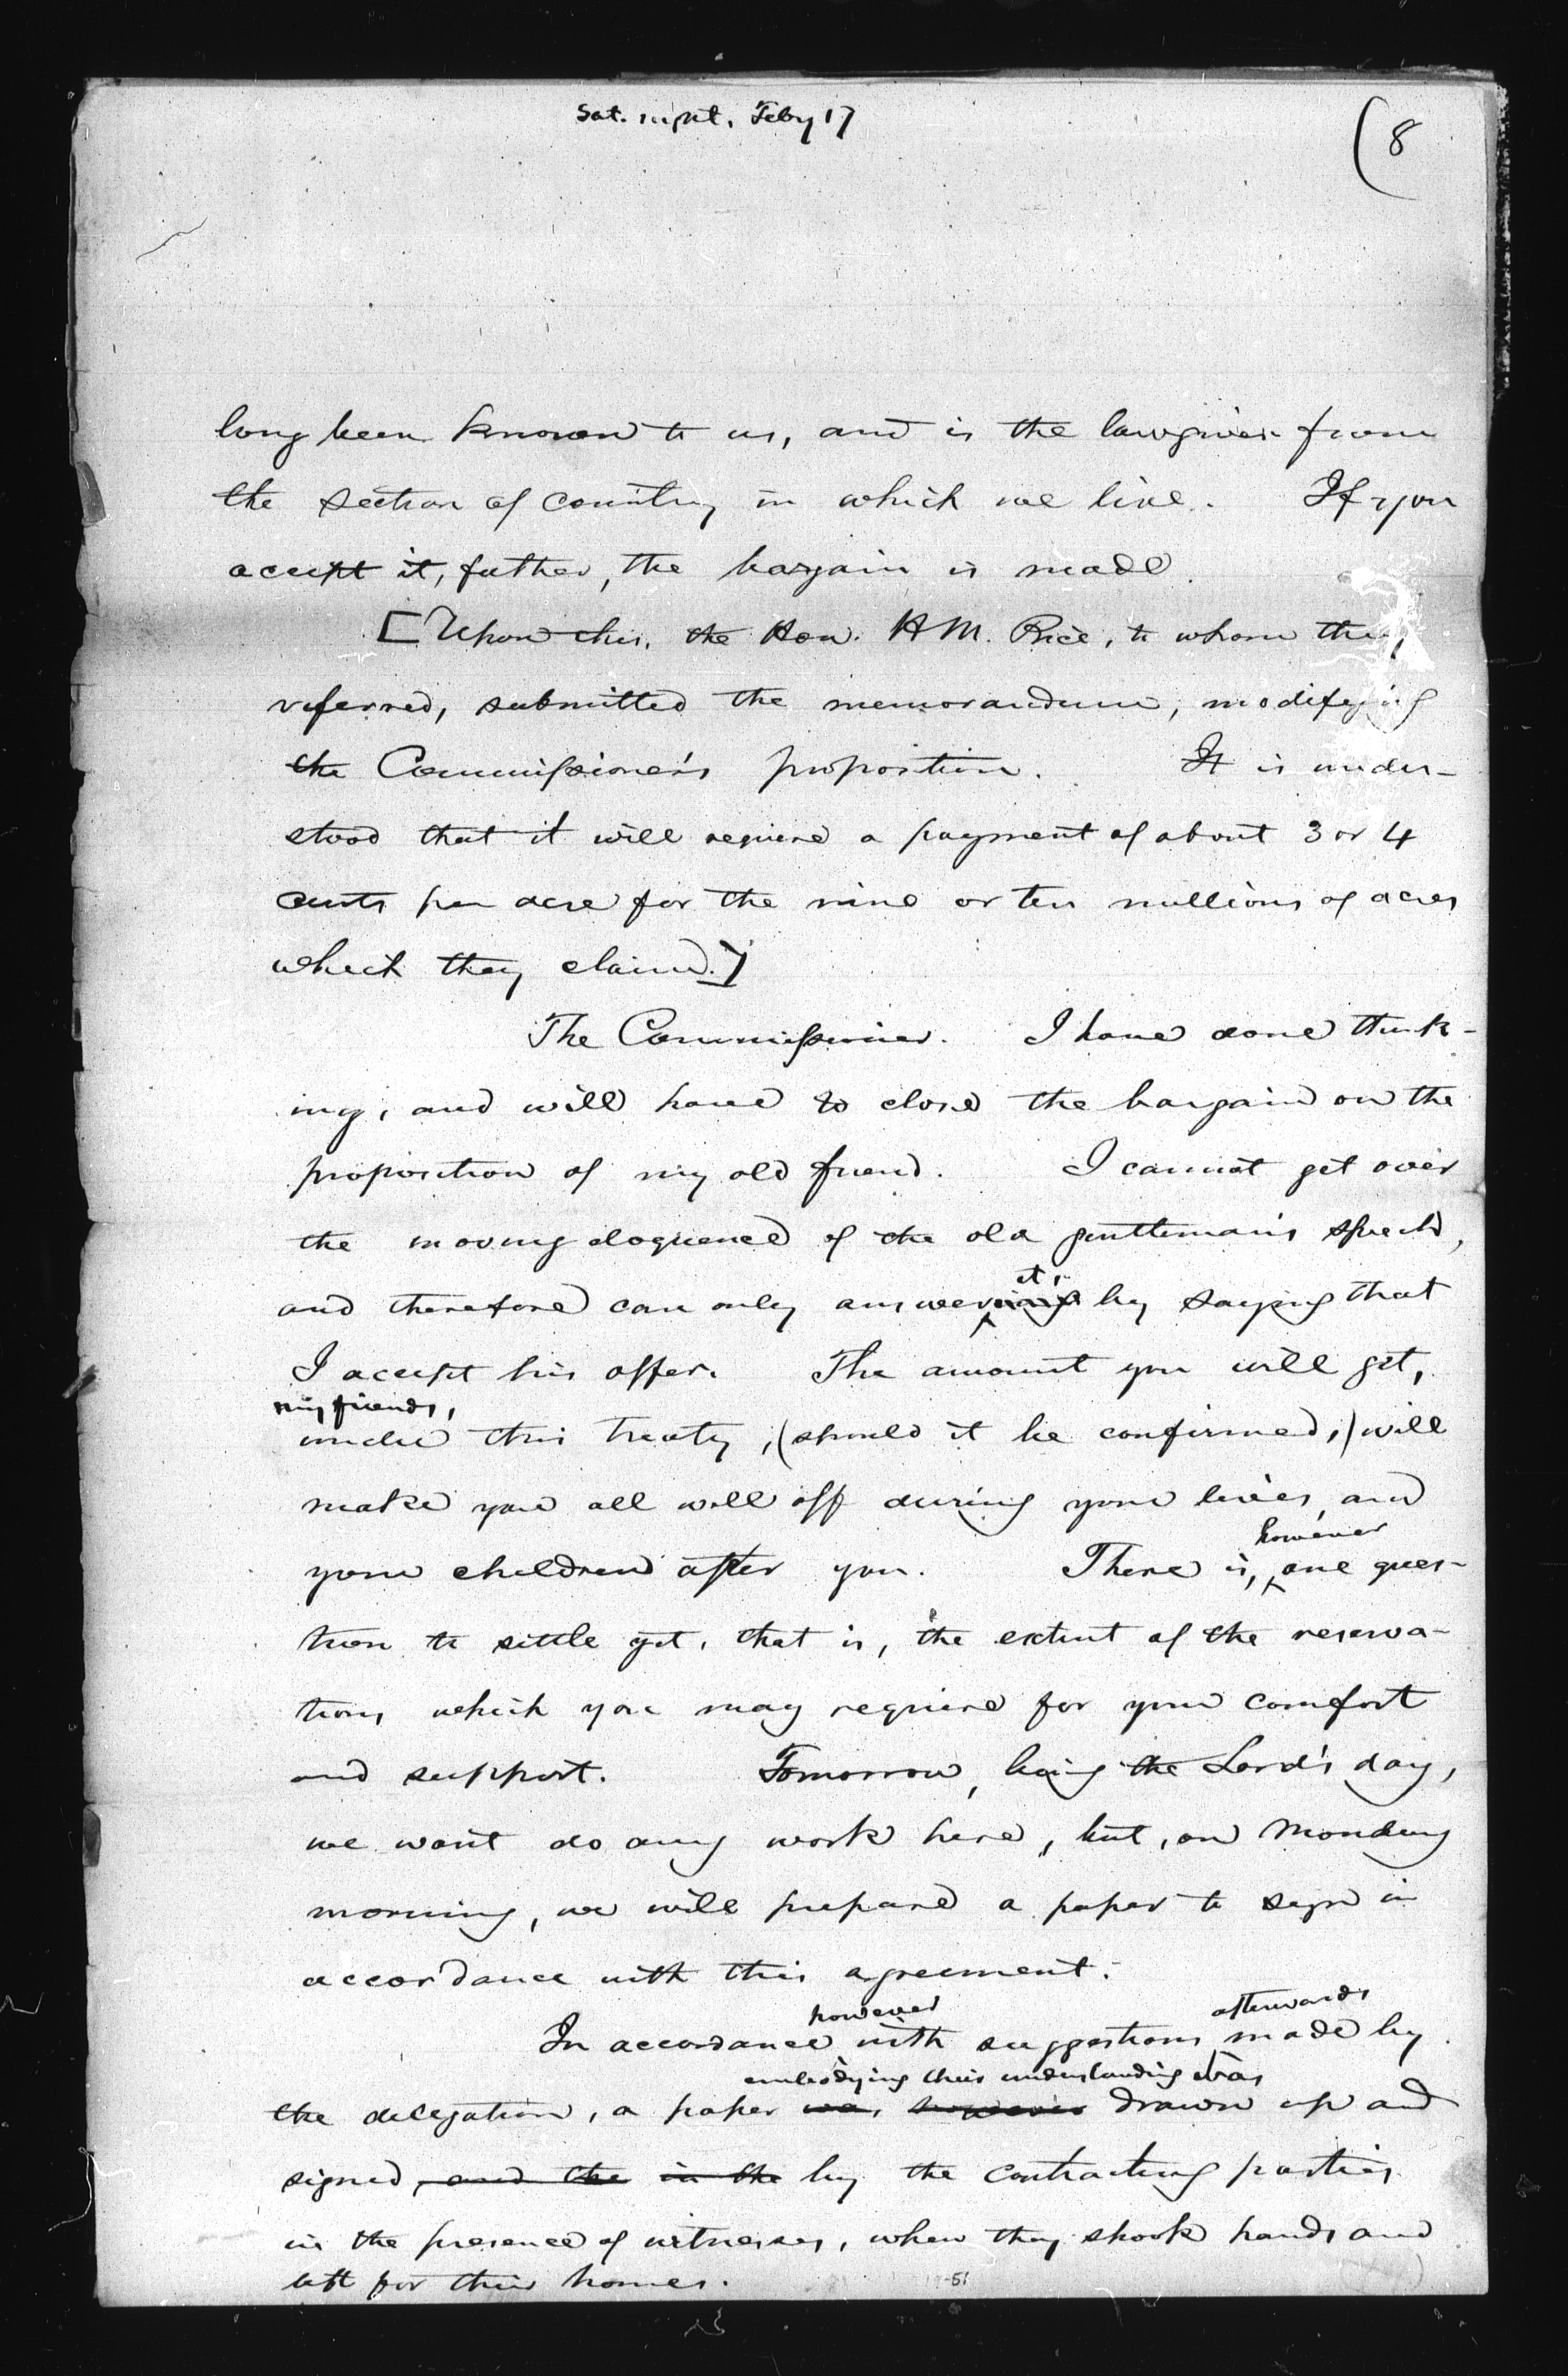 Sat. night. Feby 17
(8
long been known to us, and is the lawgiver from
the section of country in which we live. If you
accept it, father, the bargain is made.
[Upon this, the Hon. H M. Rice, to whom they
referred, submitted the memorandum, modifying
the Commissioner's proposition. It is under-
stood that it will require a payment of about 3 or 4
cents per acre for the nine or ten millions of acres
which they claim.]
The Commissioner. I have done think-
ing, and will have to close the bargain on the
proposition of my old friend. I cannot get over
the moving eloquence of the old gentleman's speech,
it,
and therefore can only answer by saying that
I accept his offer. The amount you will get,
my friends,
under this treaty, (should it be confirmed,) will
make you all well off during your lives, and
however
your children after you. There is, one ques-
tion to settle yet, that is, the extent of the reserva-
tions which you may require for your comfort
and support. Tomorrow, being the Lord's day,
we wont do any work here, but, on Monday
morning, we will prepare a paper to sign in
accordance with this agreement.
however afterwards
In accordance with suggestions made by
embodying this understanding was
the delegation, a paper was, however drawn up and
signed, and the in the by the contracting parties
in the presence of witnesses, when they shook hands and
left for their homes.